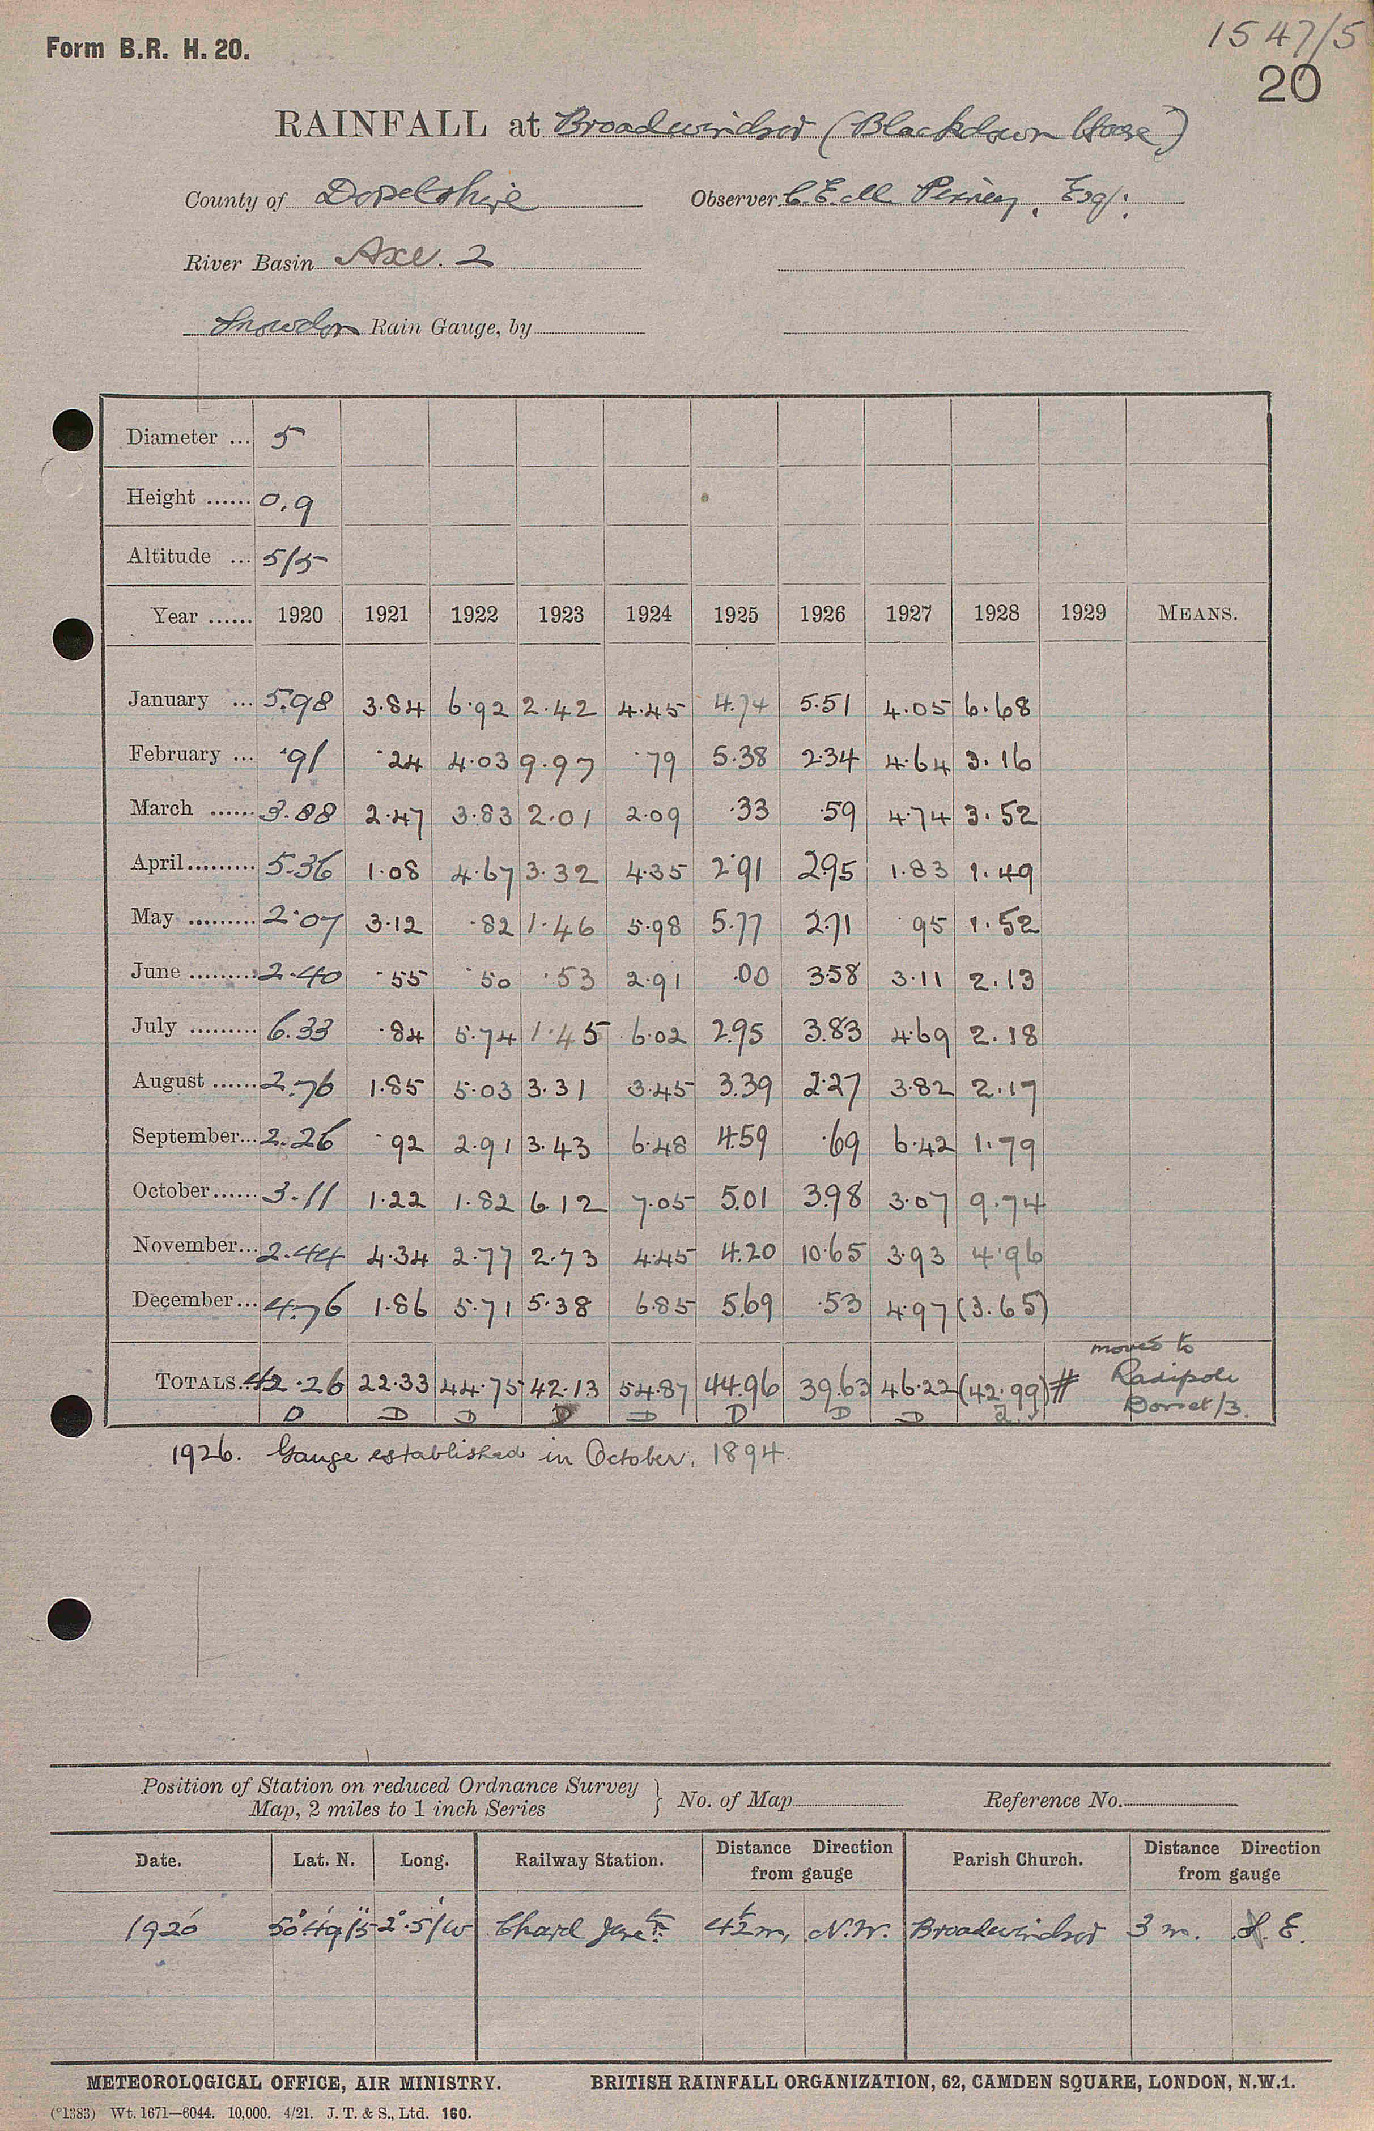 Form B.R. H. 20.
1547/5
20
RAINFALL at Broadwindsor (Blackdown House)
County of Dorsetshire Observer C. E. M. Pinney, Esq:
River Basin Axe. 2
Snowdon Rain Gauge, by
Diameter ... 5
Height ...... 0.9
Altitude ... 515
Year ...... 1920 1921 1922 1923 1924 1925 1926 1927 1928 1929 MEANS.
January ... 5.98 3.84 6.92 2.42 4.45 4.74 5.51 4.05 6.68
February ... .91 .24 4.03 9.97 .79 5.38 2.34 4.64 3.16
March ...... 3.88 2.47 3.83 2.01 2.09 .33 .59 4.74 3.52
April......... 5.36 1.08 4.67 3.32 4.35 2.91 2.95 1.83 1.49
May ......... 2.07 3.12 .82 1.46 5.98 5.77 2.71 .95 1.52
June ......... 2.40 .55 .50 .53 2.91 .00 3.58 3.11 2.13
July ......... 6.33 .84 5.74 1.45 6.02 2.95 3.83 4.69 2.18
August ...... 2.76 1.85 5.03 3.31 3.45 3.39 2.27 3.82 2.17
September... 2.26 .92 2.91 3.43 6.48 4.59 .69 6.42 1.79
October...... 3.11 1.22 1.82 6.12 7.05 5.01 3.98 3.07 9.74
November... 2.44 4.34 2.77 2.73 4.45 4.20 10.65 3.93 4.96
December... 4.76 1.86 5.71 5.38 6.85 5.69 .53 4.97 (3.65)
moved to
TOTALS... 42.26 22.33 44.75 42.13 54.87 44.96 39.63 46.22 (42.99) # Radipole
D D D D D D D D Dorset/3.
1926. Gauge established in October, 1894.
Position of Station on reduced Ordnance Survey
Map, 2 miles to 1 inch Series } No. of Map Reference No.
Date. Lat. N. Long. Railway Station. Distance Direction from gauge Parish Church. Distance Direction from gauge
1920 50° 49' 15" 2° 51' W Chard Junctn. 4½ m. N.W. Broadwindsor 3 m. E.
METEOROLOGICAL OFFICE, AIR MINISTRY. BRITISH RAINFALL ORGANIZATION, 62, CAMDEN SQUARE, LONDON, N.W.1.
(*1383) Wt. 1671—6044. 10,000. 4/21. J. T. & S., Ltd. 160.